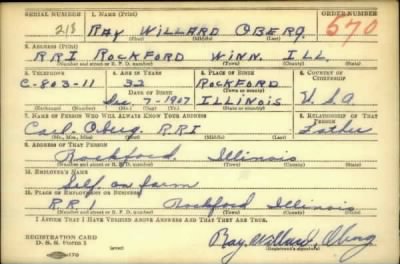 SERIAL NUMBER 1. NAME (Print) ORDER NUMBER
218 RAY WILLARD OBERG 570
(First) (Middle) (Last)
2. ADDRESS (Print)
RR1 ROCKFORD WINN. ILL.
(Number and street or R. F. D. number) (Town) (County) (State)
3. TELEPHONE 4. AGE IN YEARS 5. PLACE OF BIRTH 6. COUNTRY OF CITIZENSHIP
C-803-11 33 ROCKFORD
DATE OF BIRTH (Town or county)
Dec. 7-1907 ILLINOIS U.S.A
(Exchange) (Number) (Mo.) (Day) (Yr.) (State or country)
7. NAME OF PERSON WHO WILL ALWAYS KNOW YOUR ADDRESS 8. RELATIONSHIP OF THAT PERSON
Carl Oberg. RR1 Father
(Mr., Mrs., Miss) (First) (Middle) (Last)
9. ADDRESS OF THAT PERSON
Rockford. Illinois
(Number and street or R. F. D. number) (Town) (County) (State)
10. EMPLOYER'S NAME
Self on farm
11. PLACE OF EMPLOYMENT OR BUSINESS
RR1 Rockford Illinois
(Number and street or R. F. D. number) (Town) (County) (State)
I AFFIRM THAT I HAVE VERIFIED ABOVE ANSWERS AND THAT THEY ARE TRUE.
REGISTRATION CARD
D. S. S. Form 1 (over) Ray Willard Oberg
(Registrant's signature)